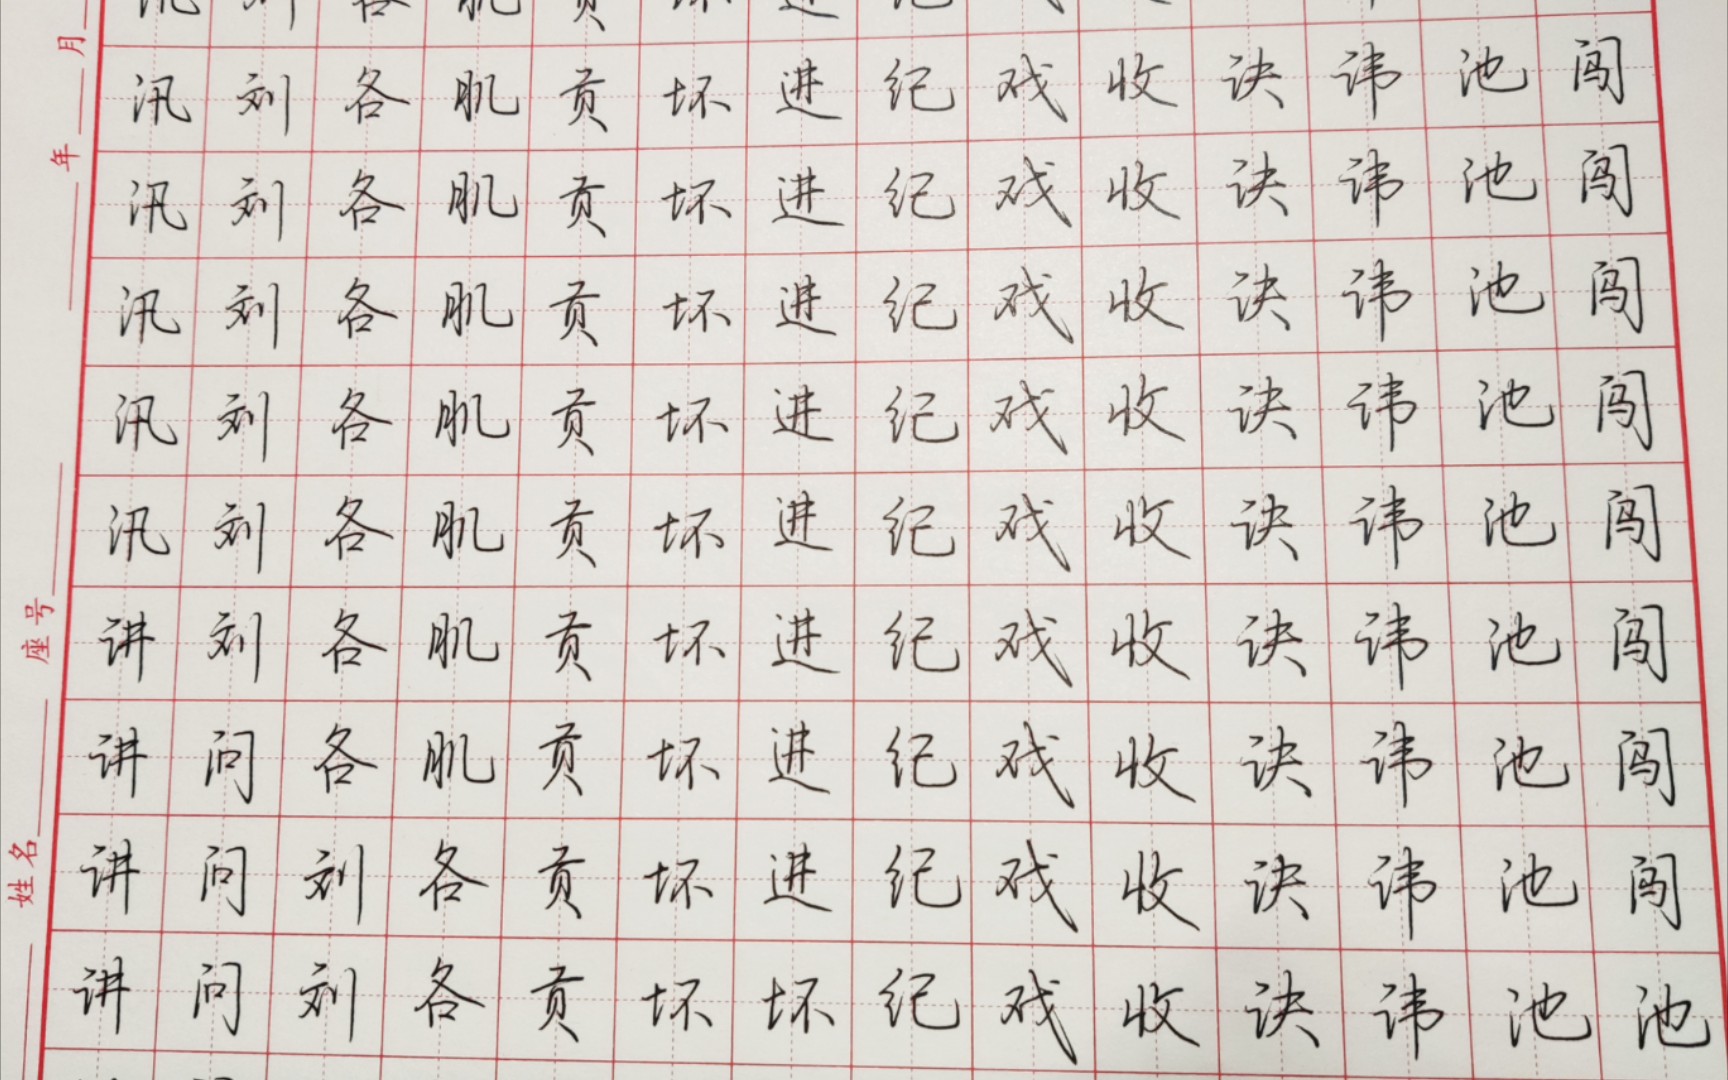 汛刘各肌贡坏进纪戏收诀讳池闯
汛刘各肌贡坏进纪戏收诀讳池闯
汛刘各肌贡坏进纪戏收诀讳池闯
汛刘各肌贡坏进纪戏收诀讳池闯
汛刘各肌贡坏进纪戏收诀讳池闯
讲刘各肌贡坏进纪戏收诀讳池闯
讲问各肌贡坏进纪戏收诀讳池闯
讲问刘各贡坏进纪戏收诀讳池闯
讲问刘各贡坏坏纪戏收诀讳池池
姓名
座号
年 月